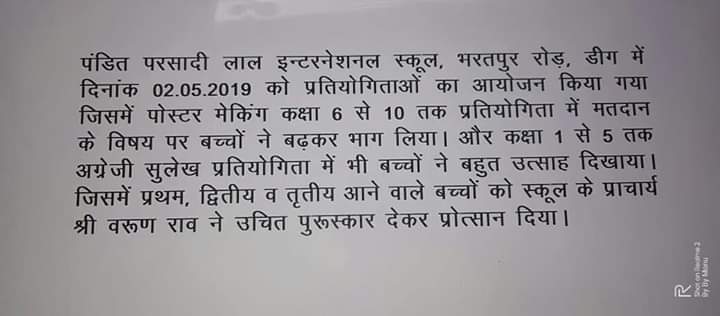 पंडित परसादी लाल इन्टरनेशनल स्कूल, भरतपुर रोड़, डीग में
दिनांक 02.05.2019 को प्रतियोगिताओं का आयोजन किया गया
जिसमें पोस्टर मेकिंग कक्षा 6 से 10 तक प्रतियोगिता में मतदान
के विषय पर बच्चों ने बढ़कर भाग लिया। और कक्षा 1 से 5 तक
अग्रेजी सुलेख प्रतियोगिता में भी बच्चों ने बहुत उत्साह दिखाया।
जिसमें प्रथम, द्वितीय व तृतीय आने वाले बच्चों को स्कूल के प्राचार्य
श्री वरूण राव ने उचित पुरूस्कार देकर प्रोत्सान दिया।
R
Shot on Realme 2
By By Monu